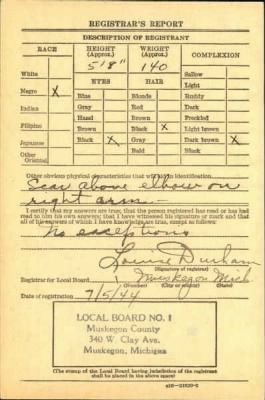 REGISTRAR'S REPORT
DESCRIPTION OF REGISTRANT
RACE HEIGHT (Approx.) WEIGHT (Approx.) COMPLEXION
5'8" 140
White Sallow
EYES HAIR Light
Negro X Blue Blonde Ruddy
Gray Red Dark
Indian Hazel Brown Freckled
Filipino Brown Black X Light brown
Japanese Black X Gray Dark brown X
Other Oriental Bald Black
Other obvious physical characteristics that will aid in identification
Scar above elbow on
right arm
I certify that my answers are true; that the person registered has read or has had
read to him his own answers; that I have witnessed his signature or mark and that
all of his answers of which I have knowledge are true, except as follows:
No exceptions
Durham
(Signature of registrar)
Registrar for Local Board 1 Muskegon Mich
Date of registration 7/5/44
LOCAL BOARD NO. 1
Muskegon County
340 W. Clay Ave.
Muskegon, Michigan
(The stamp of the Local Board having jurisdiction of the registrant
shall be placed in the above space)